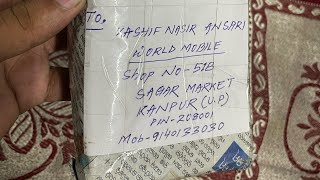 TO.
KASHIF NASIR ANSARI
WORLD MOBILE
Shop No-51B
SAGAR MARKET
KANPUR (U.P)
PIN-208001
Mob-9140133030